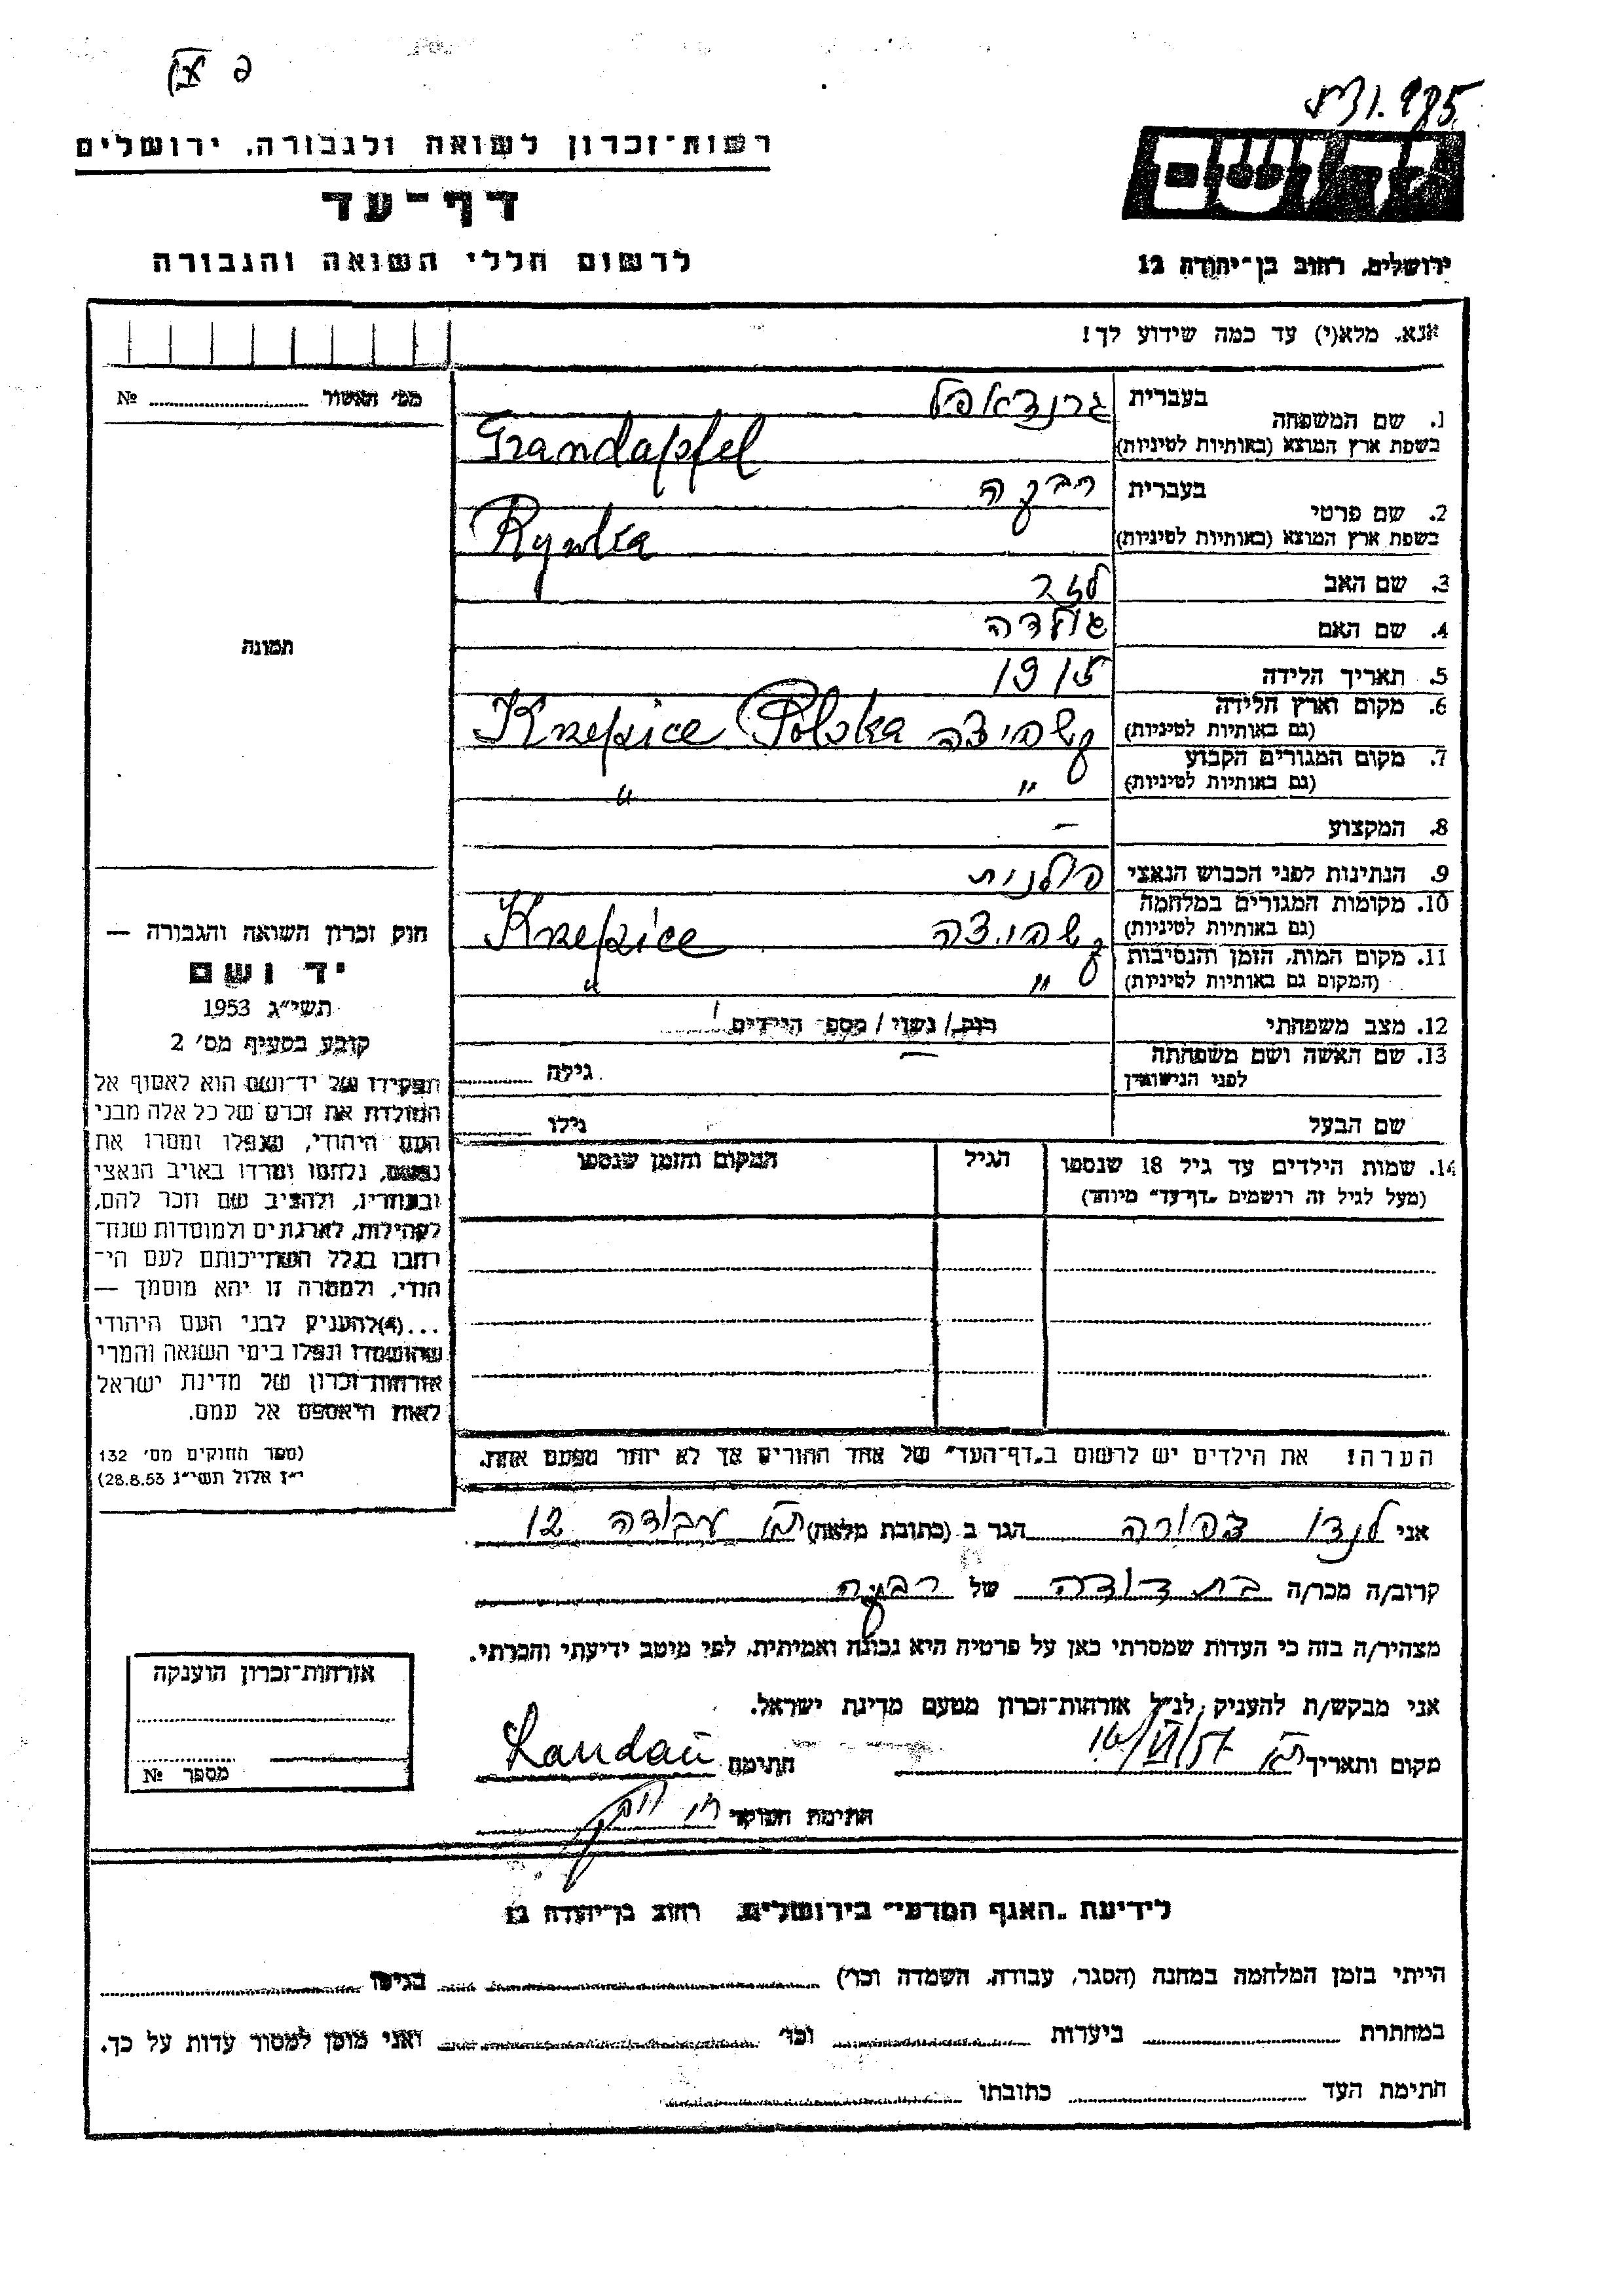 רשות־זכרון לשואה ולגבורה, ירושלים
דף־עד
לרשום חללי השואה והגבורה
ירושלים, רחוב בן־יהודה 12
אנא, מלא(י) עד כמה שידוע לך!
מס׳ האשור № 
1. שם המשפחה בעברית גרנדאפל
בשפת ארץ המוצא (באותיות לטיניות) Grandapfel
2. שם פרטי בעברית רבקה
בשפת ארץ המוצא (באותיות לטיניות) Rywka
3. שם האב לזר
4. שם האם גולדה
5. תאריך הלידה 1915
6. מקום וארץ הלידה (גם באותיות לטיניות) קשפיצה Krzepice Polska
7. מקום המגורים הקבוע (גם באותיות לטיניות) " "
8. המקצוע –
9. הנתינות לפני הכבוש הנאצי פולנית
10. מקומות המגורים במלחמה (גם באותיות לטיניות) קשפיצה Krzepice
11. מקום המות, הזמן והנסיבות (המקום גם באותיות לטיניות) " "
12. מצב משפחתי רוק/ נשוי/ מספר הילדים
13. שם האשה ושם משפחתה לפני הנישואין – גילה
שם הבעל גילו
14. שמות הילדים עד גיל 18 שנספו
(מעל לגיל זה רושמים „דף־עד" מיוחד)
הגיל
המקום והזמן שנספו
הערה! את הילדים יש לרשום ב„דף־העד" של אחד ההורים אך לא יותר מפעם אחת.
תמונה
חוק זכרון השואה והגבורה —
יד ושם
תשי״ג 1953
קובע בסעיף מס׳ 2
תפקידו של יד־ושם הוא לאסוף אל
המולדת את זכרם של כל אלה מבני
העם היהודי, שנפלו ומסרו את
נפשם, נלחמו ומרדו באויב הנאצי
ובעוזריו, ולהציב שם וזכר להם,
לקהילות, לארגונים ולמוסדות שנח־
רבו בגלל השתייכותם לעם הי־
הודי, ולמטרה זו יהא מוסמך —
...(4) להעניק לבני העם היהודי
שהושמדו ונפלו בימי השואה והמרי
אזרחות־זכרון של מדינת ישראל
לאות היאספם אל עמם.
(ספר החוקים מס׳ 132
י״ז אלול תשי״ג 28.8.53)
אני לנדו צפורה הגר ב (כתובת מלאה) עבודה 12
קרוב/ה מכר/ה בת דודה של רבקה
מצהיר/ה בזה כי העדות שמסרתי כאן על פרטיה היא נכונה ואמיתית, לפי מיטב ידיעתי והכרתי.
אני מבקש/ת להעניק לנ״ל אזרחות־זכרון מטעם מדינת ישראל.
מקום ותאריך 16/VI/57 חתימה Landau
חתימת הפוקד
אזרחות־זכרון הוענקה
מספר №
לידיעת „האגף המדעי" בירושלים, רחוב בן־יהודה 12
הייתי בזמן המלחמה במחנה (הסגר, עבודה, השמדה וכו׳) בגיטו
במחתרת ביערות וכו׳ ואני מוכן למסור עדות על כך.
חתימת העד כתובתו